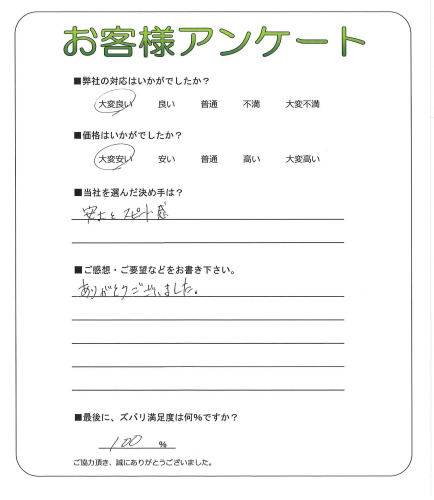 お客様アンケート
■弊社の対応はいかがでしたか？
大変良い 良い 普通 不満 大変不満
■価格はいかがでしたか？
大変安い 安い 普通 高い 大変高い
■当社を選んだ決め手は？
安さとスピード感
■ご感想・ご要望などをお書き下さい。
ありがとうございました。
■最後に、ズバリ満足度は何％ですか？
100 %
ご協力頂き、誠にありがとうございました。